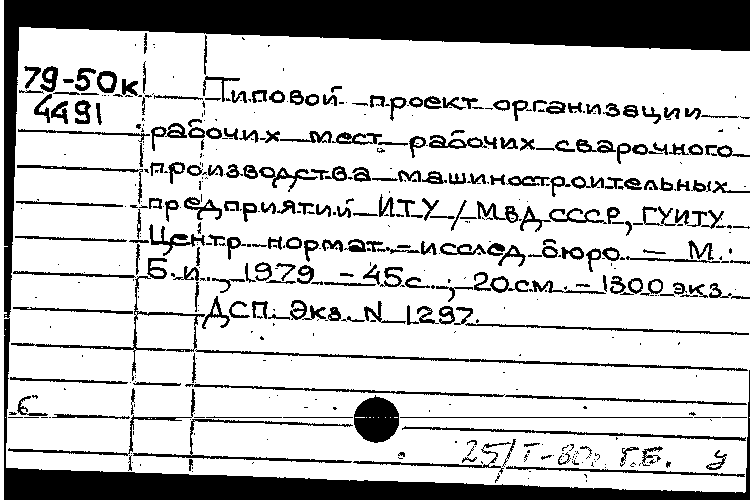 79-50к
4491
Типовой проект организации
рабочих мест рабочих сварочного
производства машиностроительных
предприятий ИТУ / МВД СССР, ГУИТУ.
Центр. нормат.-исслед. бюро. – М.:
Б.и., 1979 – 45с.; 20см. – 1300 экз.
ДСП. Экз. N 1297.
б
25/I-80г. Г.Б. У